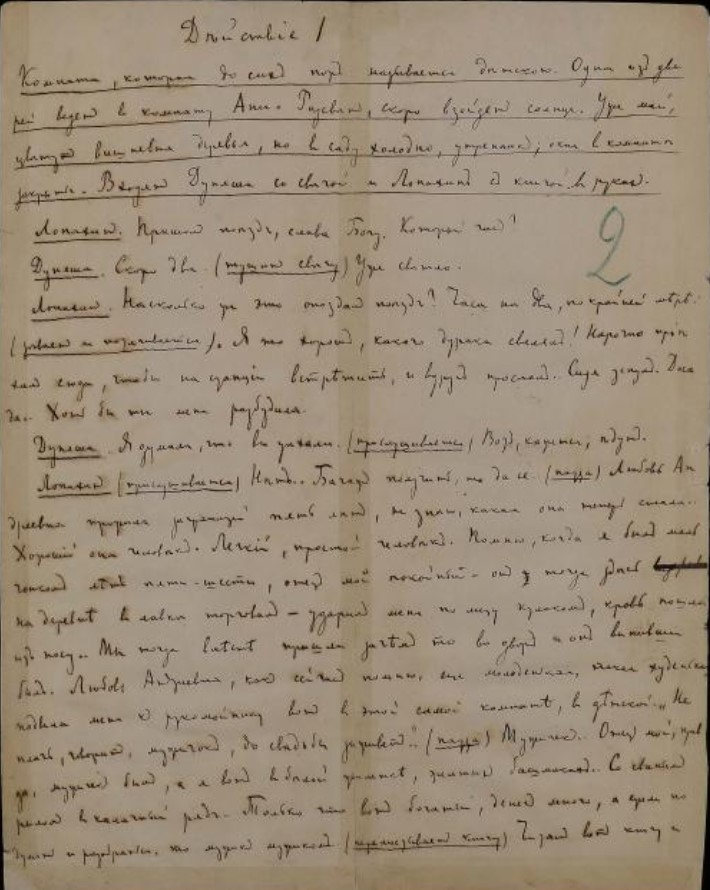 Дѣйствіе 1
Комната, которая до сихъ поръ называется дѣтскою. Одна изъ две
рей ведетъ въ комнату Ани. Разсвѣтъ, скоро взойдетъ солнце. Уже май,
цвѣтутъ вишневыя деревья, но въ саду холодно, утренникъ; окна въ комнатѣ
закрыты. Входятъ Дуняша со свѣчой и Лопахинъ съ книгой въ рукѣ.
Лопахинъ. Пришелъ поѣздъ, слава Богу. Который часъ?
2
Дуняша. Скоро два. (тушитъ свѣчу) Уже свѣтло.
Лопахинъ. На сколько же это опоздалъ поѣздъ? Часа на два, по крайней мѣрѣ.
(зѣваетъ и потягивается). Я-то хорошъ, какого дурака свалялъ! Нарочно прiѣ
халъ сюда, чтобы на станціи встрѣтить, и вдругъ проспалъ. Сидя уснулъ. Доса
да.. Хоть бы ты меня разбудила.
Дуняша. Я думала, что вы уѣхали. (прислушивается) Вотъ, кажется, ѣдутъ.
Лопахинъ (прислушивается) Нѣтъ.. Багажъ получить, то да се. (пауза) Любовь Ан
дреевна прожила за границей пять лѣтъ, не знаю, какая она теперь стала..
Хорошій она человѣкъ. Легкій, простой человѣкъ. Помню, когда я былъ маль
чонкомъ лѣтъ пяти-шести, отецъ мой покойный - онъ тогда здѣсь
на деревнѣ въ лавкѣ торговалъ - ударилъ меня по лицу кулакомъ, кровь пошла
изъ носу.. Мы тогда вмѣстѣ пришли зачѣмъ то во дворъ и онъ выпивши
былъ. Любовь Андреевна, какъ сейчасъ помню, еще молоденькая, такая худенькая
подвела меня къ рукомойнику вотъ въ этой самой комнатѣ, въ дѣтской. „Не
плачь, говоритъ, мужичокъ, до свадьбы заживетъ.." (пауза) Мужичокъ.. Отецъ мой, прав
да, мужикъ былъ, а я вотъ въ бѣлой жилеткѣ, желтыхъ башмакахъ. Со свинымъ
рыломъ въ калачный рядъ. Только что вотъ богатый, денегъ много, а ежели по
думать и разобраться, то мужикъ мужикомъ (перелистываетъ книгу) Читалъ вотъ книгу и